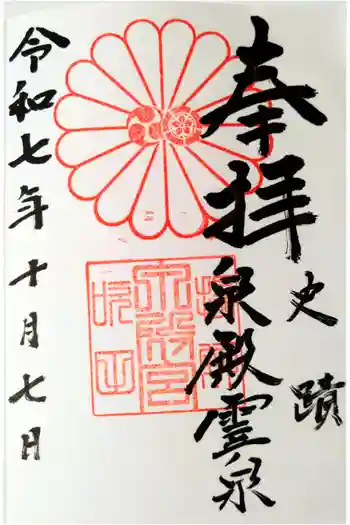 史蹟
奉拝
泉殿霊泉
令和七年十月七日